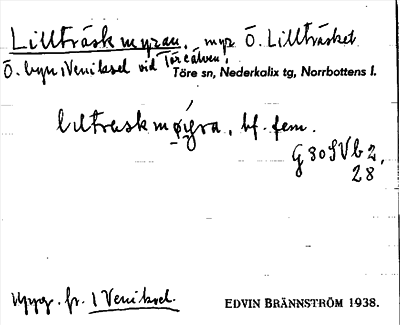 Lillträskmyran, myr Ö. Lillträsket
Ö. byn 1 Veniksel vid Töreälven,
Töre sn, Nederkalix tg, Norrbottens l.
bf. fem.
G 80 S V b 2,
28
Uppg. fr. 1 Veniksel.
EDVIN BRÄNNSTRÖM 1938.